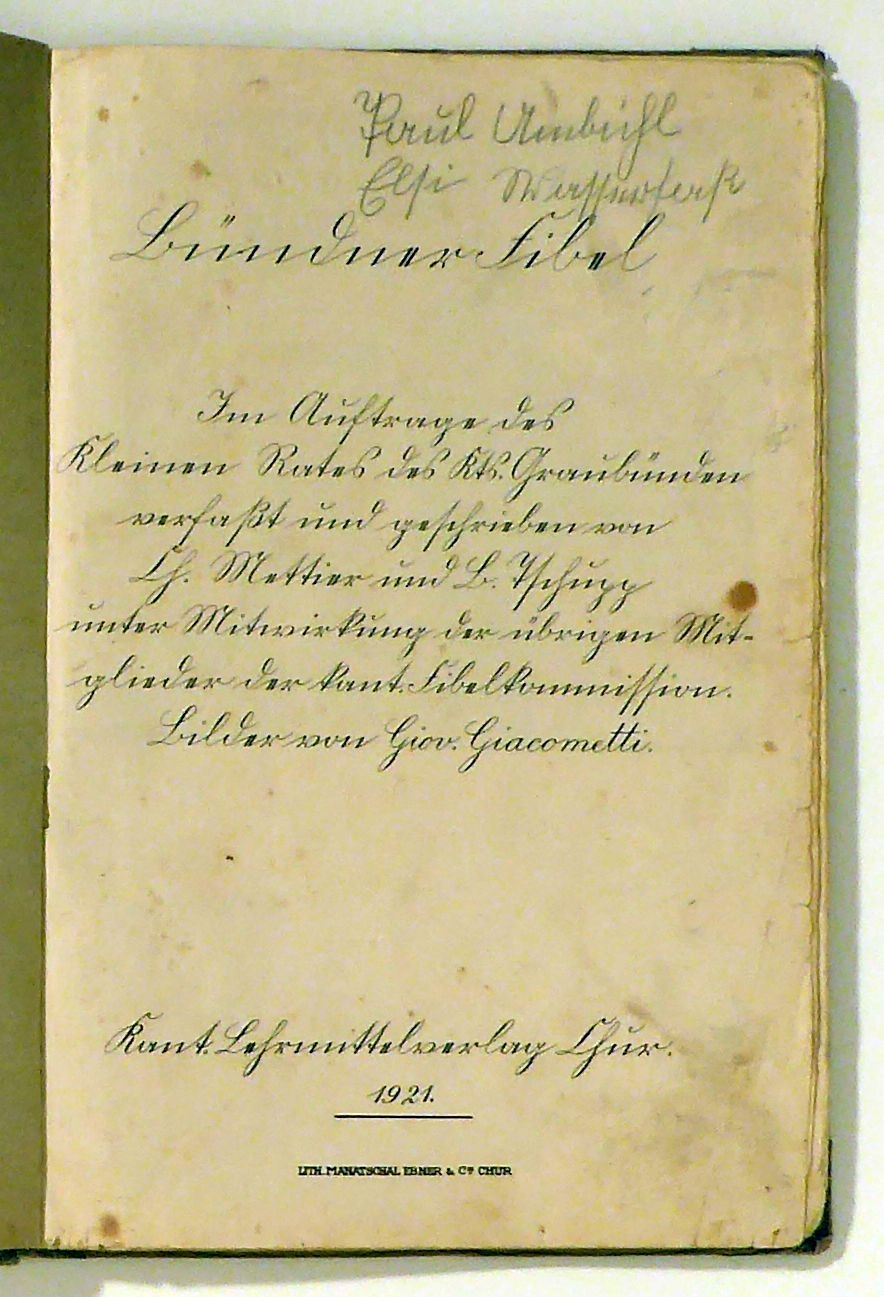 Paul Ambühl
Elsi
Bündner Fibel
Im Auftrage des
Kleinen Rates des Kts. Graubünden
verfaßt und geschrieben von
Ch. Mettier und B. Tschupp
unter Mitwirkung der übrigen Mit-
glieder der kant. Fibelkommission.
Bilder von Giov. Giacometti.
Kant. Lehrmittelverlag Chur.
1921.
LITH. MANATSCHAL EBNER & Cᵒ CHUR